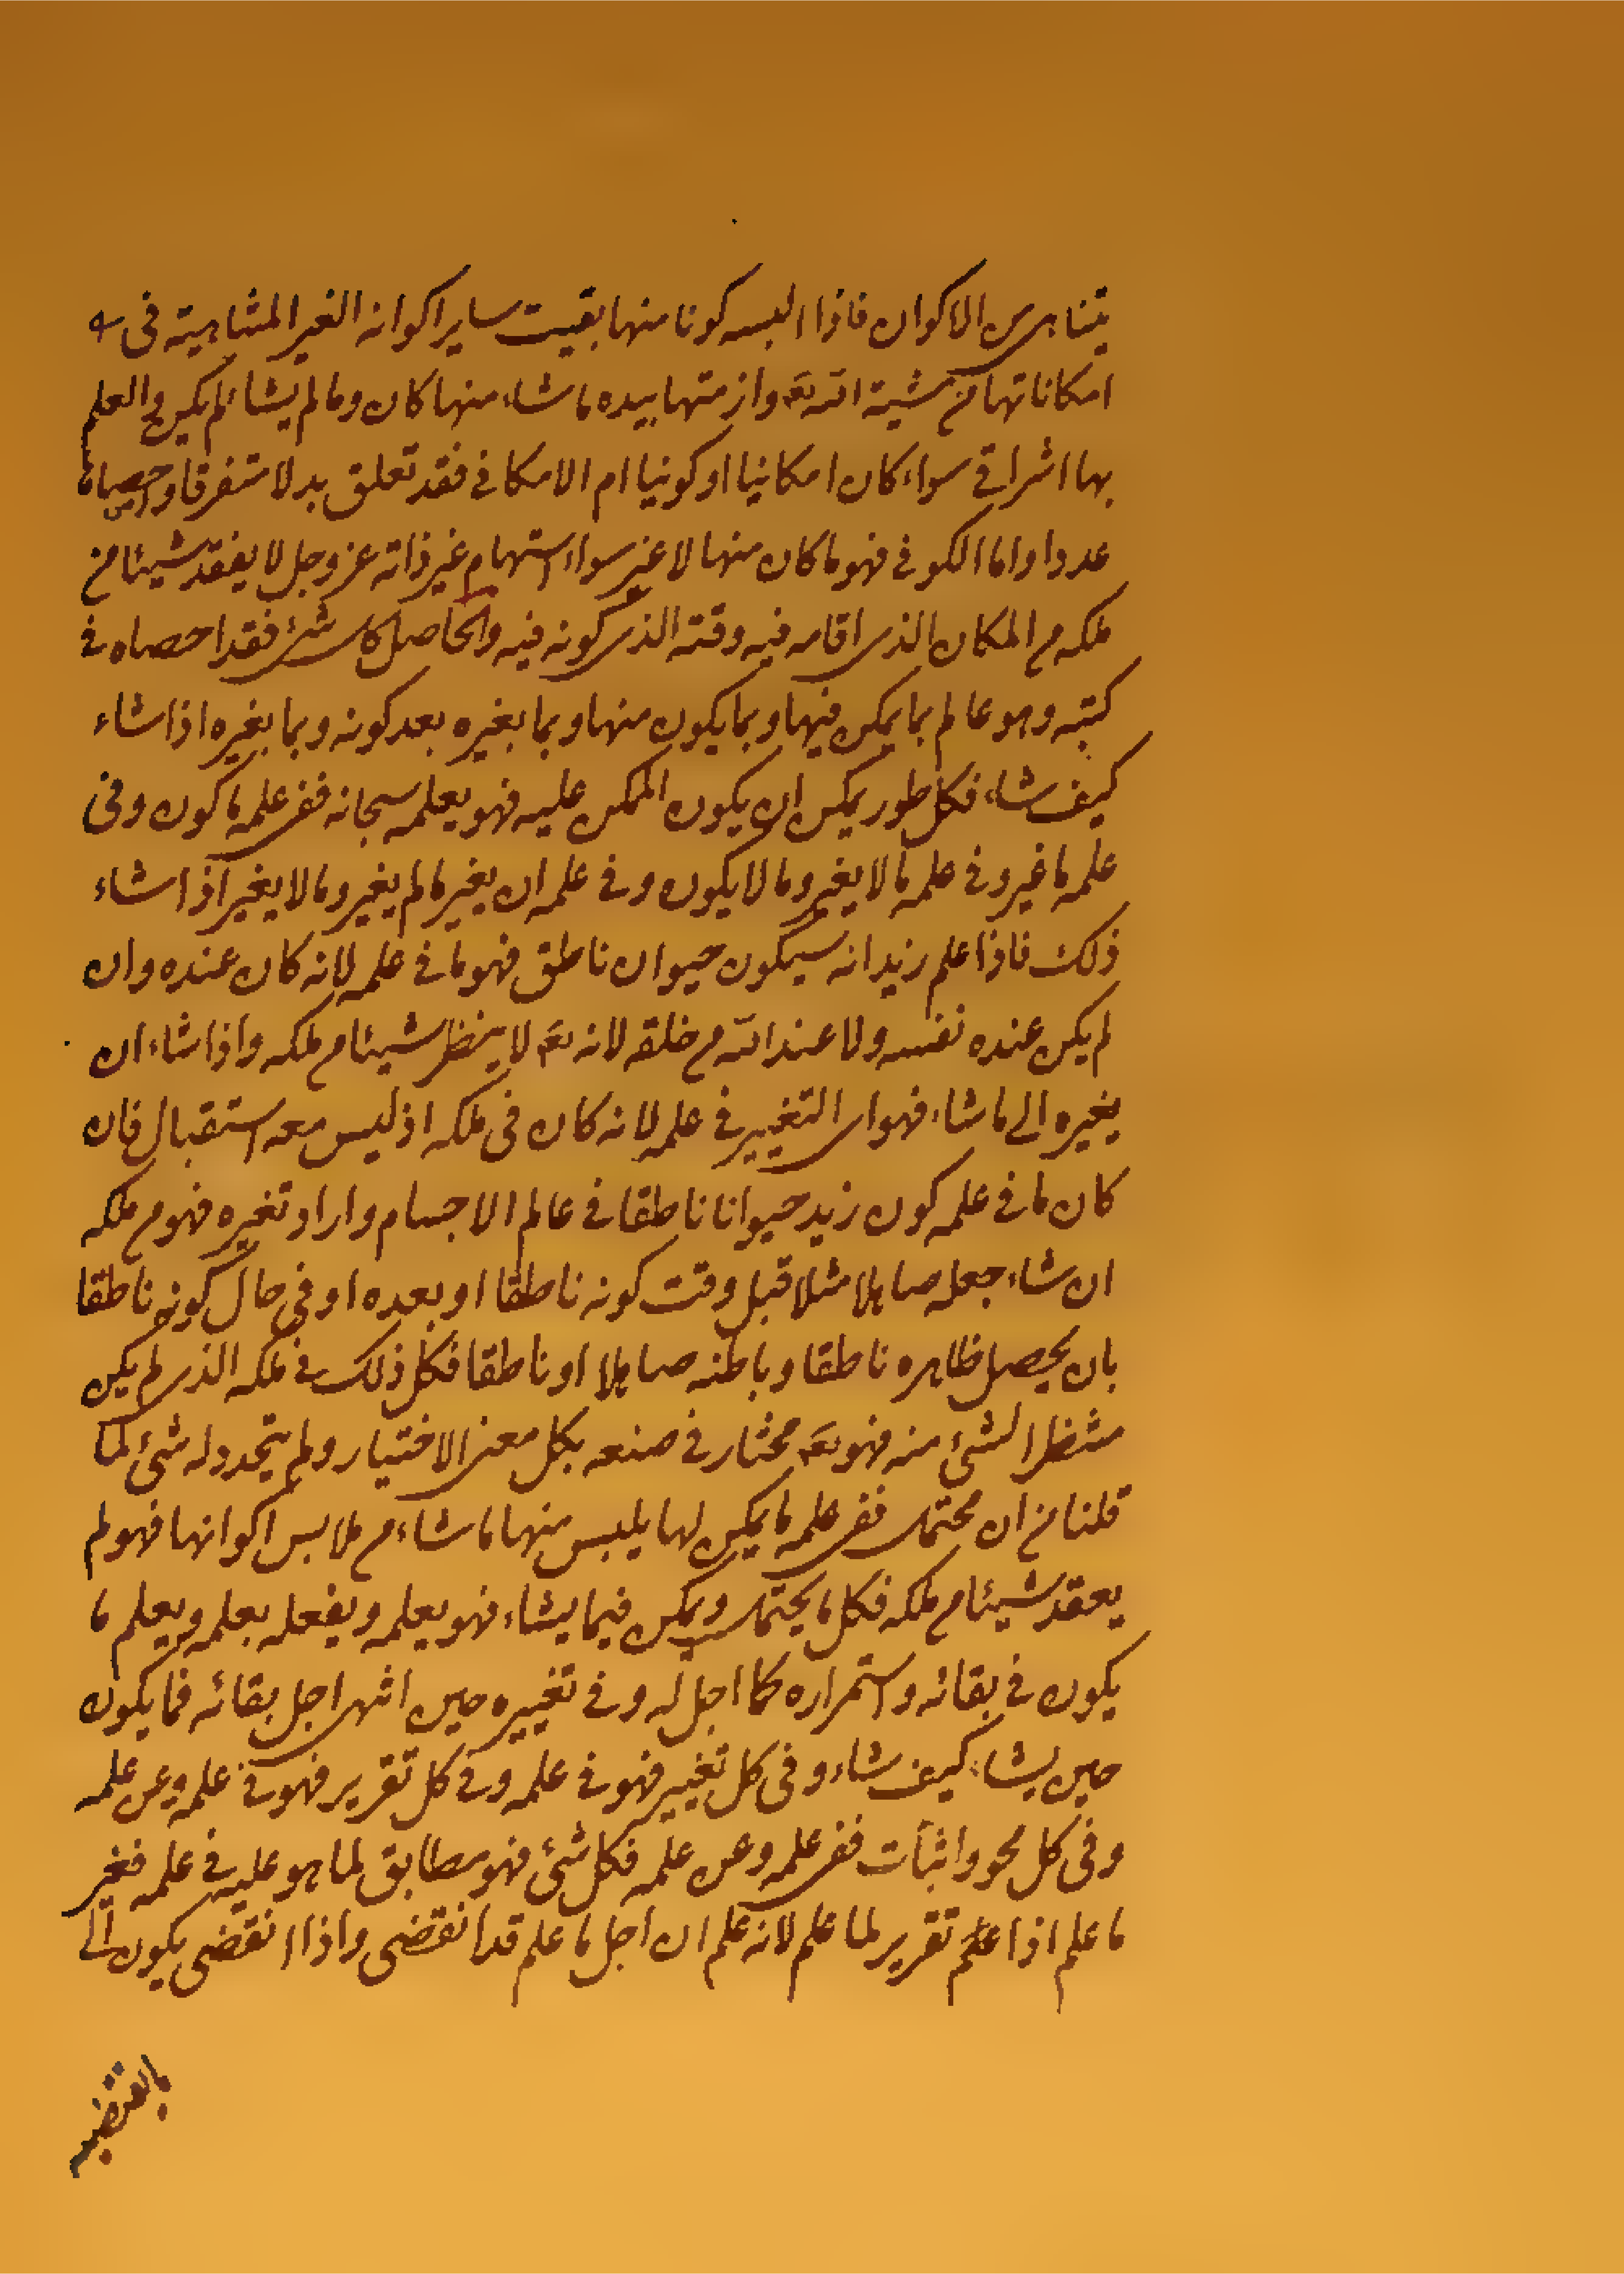 يتناهى الاكوان فاذا البسه كونا منها بقيت ساير اكوانه الغير المتناهية فى
امكاناتها من مشية الله تعَ وازمتها بيده ما شاء منها كان وما لم يشاء لم يكن والعلم
بها اشراقى سواء كان امكانيا او كونيا ام الامكانى فقد تعلق بدلا متفرقا واحصاها
عددا واما الكونى فهو ما كان منها لا غير سواء غير ذاته عز وجل لا يفقد شيئا من
ملكه من المكان الذى اقامه فيه وقته الذى كونه فيه والحاصل كل شئ فقد احصاه فى
كتبه وهو عالم بما يمكن فيها وبما يكون منها وبما يغيره بعد كونه وبما يغيره اذا شاء
كيف شاء فكل طور يمكن ان يكون الممكن عليه فهو يعلمه سبحانه ففى علمه ما كون وفى
علمه ما غير وفى علمه ما لا يغير وما لا يكون وفى علمه ان يغير ما لم يغير وما لا يغير اذا شاء
ذلك فاذا علم زيد انه سيكون حيوان ناطق فهو ما فى علمه لانه كان عنده وان
لم يكن عنده نفسه ولا عند الله من خلقه لانه تعَ لا ينتظر شيئا من ملكه واذا شاء ان
يغيره الى ما شاء فهو اى التغيير فى علمه لانه كان فى ملكه اذ ليس معه استقبال فان
كان ما فى علمه كون زيد حيوانا ناطقا فى عالم الاجسام واراد تغيره فهو من ملكه
ان شاء جعله صاهلا مثلا قبل وقت كونه ناطقا او بعده او فى حال كونه ناطقا
بان يحصل ظاهره ناطقا وباطنه صاهلا او ناطقا فكل ذلك فى ملكه الذى لم يكن
منتظرا لشئ منه فهو تعَ مختار فى صنعه بكل معنى الاختيار ولم يتجدد له شئ لما
قلنا من ان محتمل ففى علمه ما يمكن لها يلبس منها ما شاء من ملابس اكوانها فهو لم
يعقد شيئا من ملكه فكل ما يحتمل ويمكن فيما يشاء فهو يعلمه ويفعله بعلمه ويعلم ما
يكون فى بقائه واستمراره كما اجل له وفى تغييره حين انتهى اجل بقائه فما يكون
حين يشاء كيف شاء وفى كل تغيير فهو فى علمه وفى كل تقرير فهو فى علمه وعن علمه
وفى كل محو واثبات ففى علمه وعن علمه فكل شئ فهو مطابق لما هو عليه فى علمه فغير
ما علم اذا علم تقرير لما علم لانه علم ان اجل ما علم قد انقضى واذا انقضى يكون الى